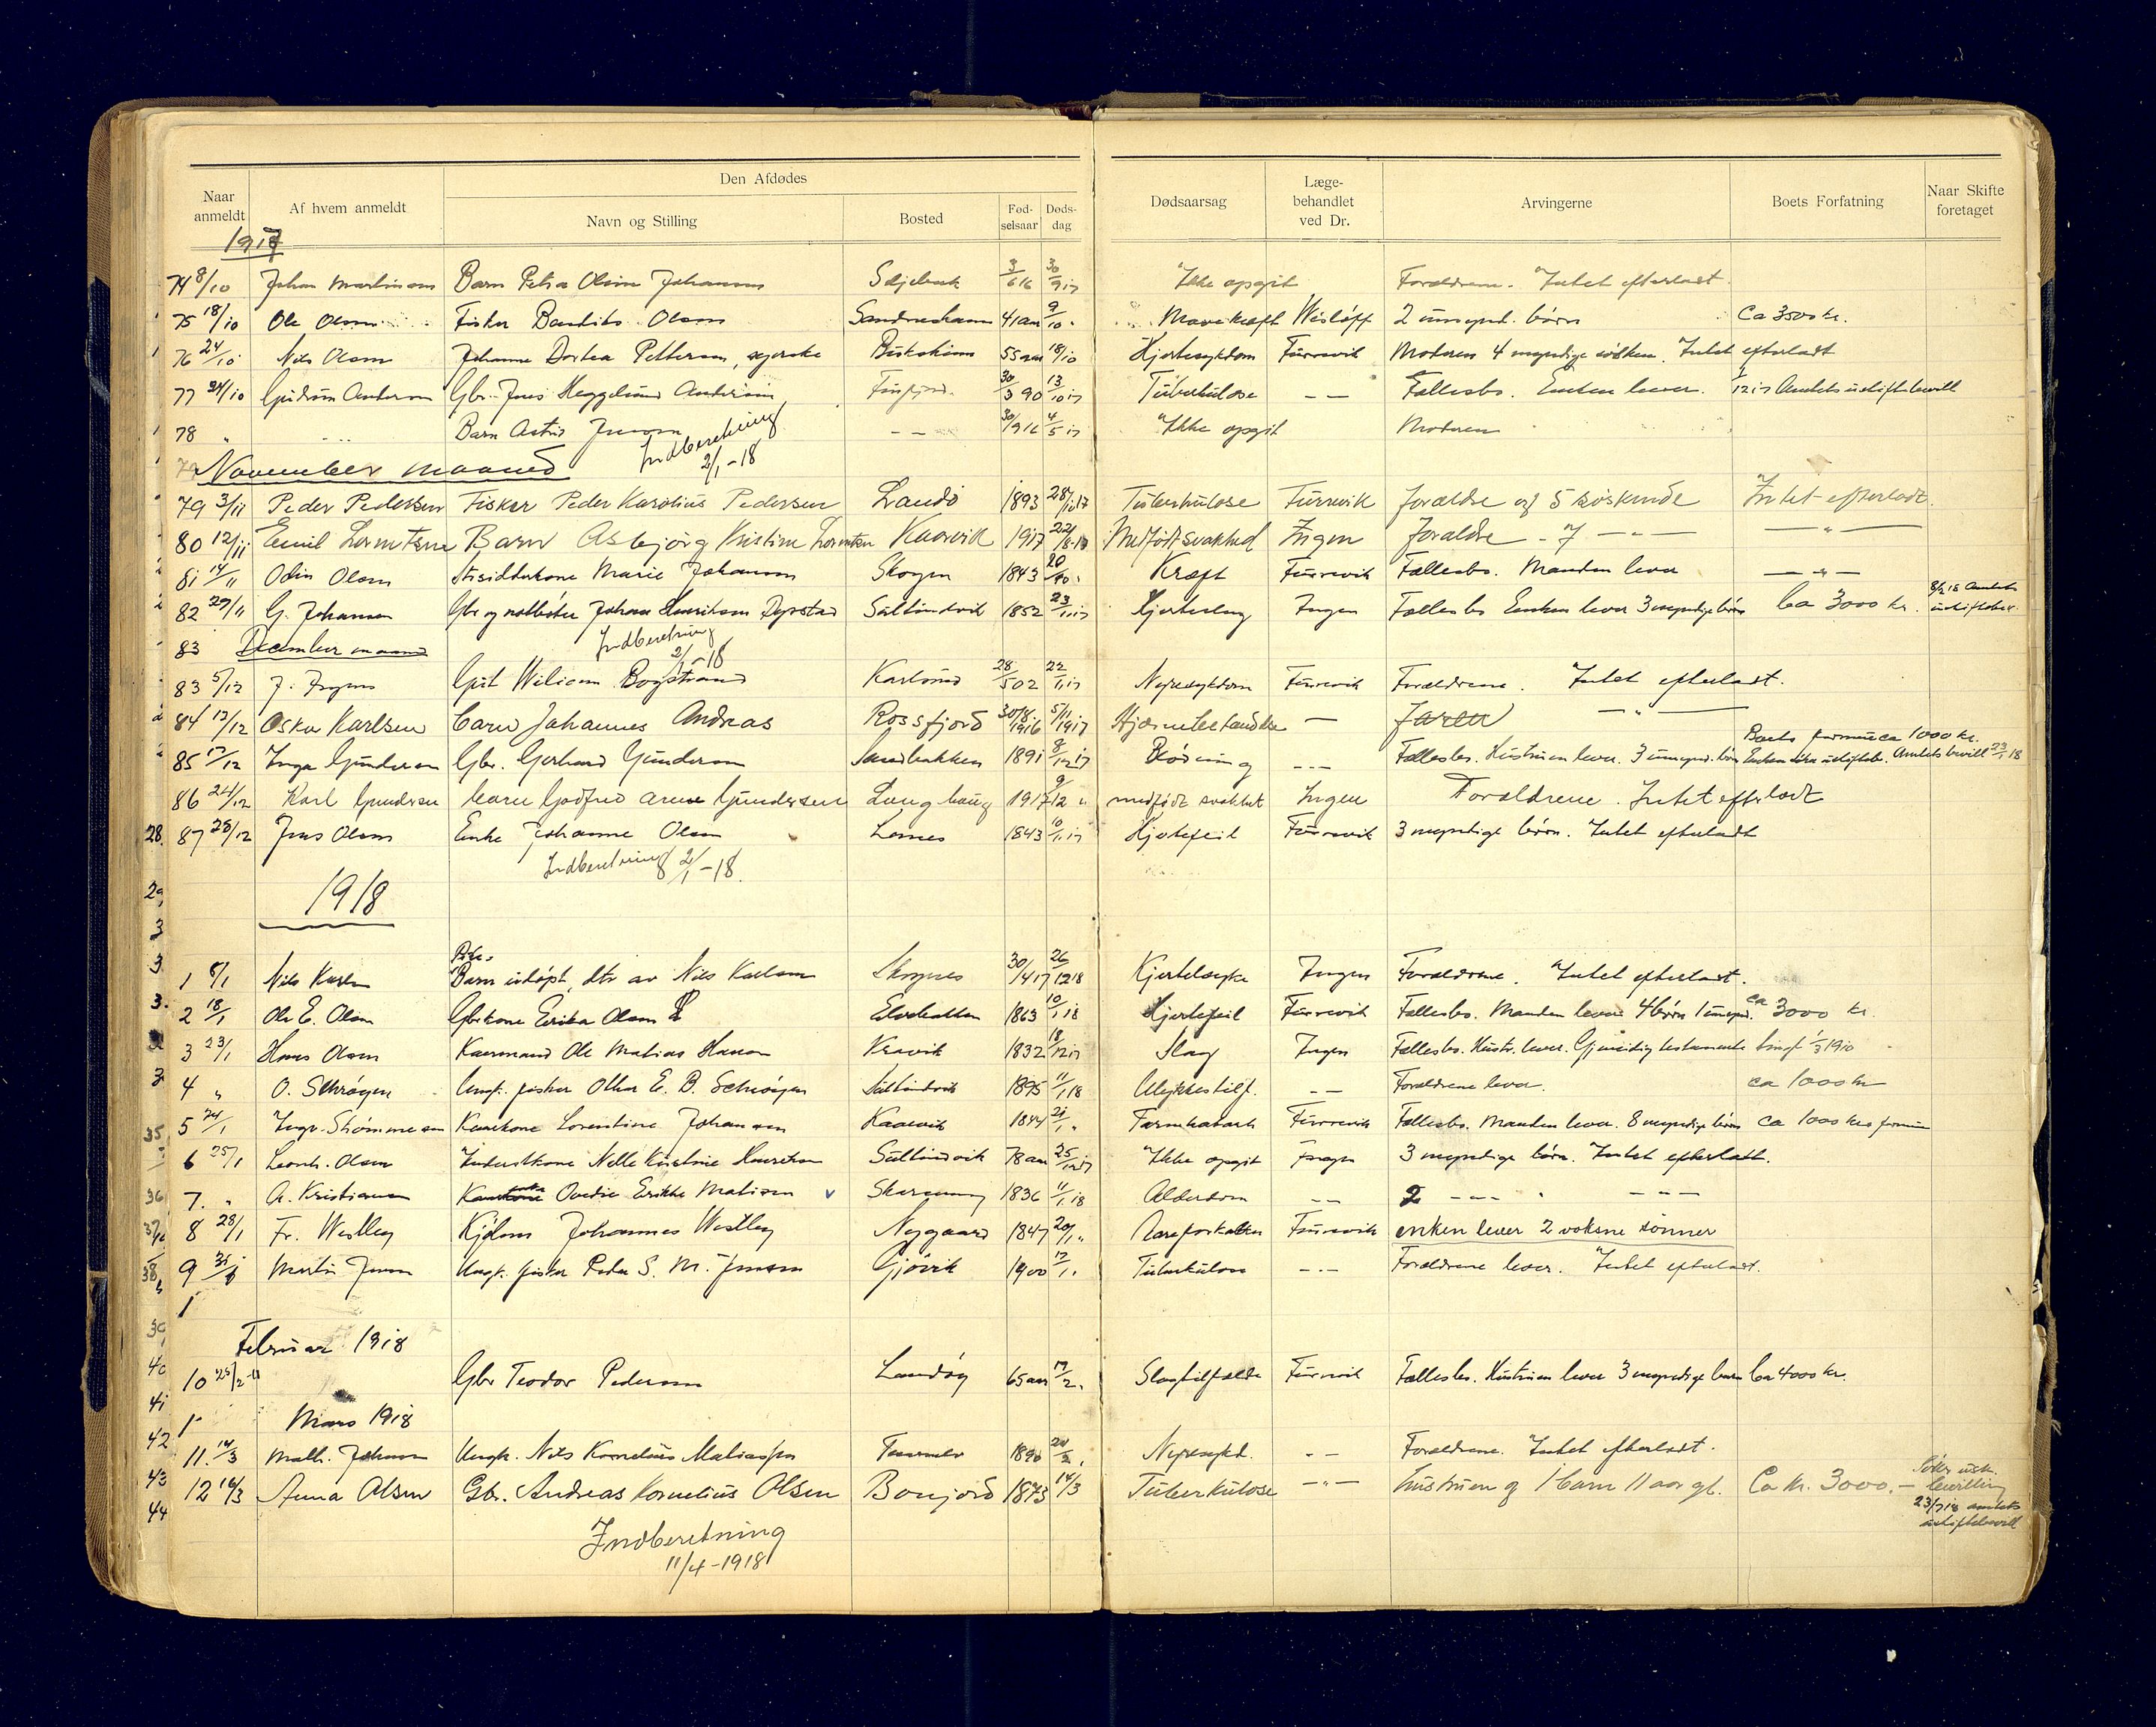 Naar anmeldt
Af hvem anmeldt
Den Afdødes
Navn og Stilling
Bosted
Fød-selsaar
Døds-dag
Dødsaarsag
Læge-behandlet ved Dr.
Arvingerne
Boets Forfatning
Naar Skifte foretaget
1917
74 8/10 Johan Martinsen Barn Petra Oline Johansen 3/6 16 30/9 17 Ikke opgit Forældrene. Intet efterlatt.
75 18/10 Ole Olsen Fisker Olsen 41 aar 9/10 Mavekræft Wisløff 2 umynd. børn Ca 3500 kr.
76 24/10 Nils Olsen Johanne Dortea Pettersen 55 aar 18/10 Hjertesykdom Furrevik Moderen 4 myndige søsken. Intet efterlatt
77 24/10 Gudrun Andersen Gbr. Jens Heggelund Andersen Finfjord 30/3 90 13/10 17 Tuberkulose – – Fællesbo. Enken lever. Amtets uskiftebevill
78 " Barn Astrid Jensen – – 30/9 16 4/5 17 Ikke opgit Moderen
Indberetning 2/1-18
79 November maaned
79 3/11 Peder Pedersen Fisker Peder Karolius Pedersen Landø 1893 28/10 17 Tuberkulose Furrevik forældre og 5 søskende Intet efterladt
80 12/11 Emil Lorentsen Barn Asbjørg Kristine Lorentsen Kaarvik 1917 22/8-17 Medfødt svakhed Ingen forældre - I – " – – " –
81 14/11 Odin Olsen Marie Johansen Skogen 1843 20/10 Kræft Furrevik Fællesbo. Manden lever – " –
82 29/11 G. Johansen Gbr og Johan Henriksen Dyrstad Sultindvik 1852 23/11 17 Hjerteslag Ingen Fællesbo Enken lever 3 myndige børn Ca 3000 kr. 8/2 18 Amtets uskiftebev.
83 December maaned
Indberetning 2/1-18
83 5/12 J. Gut Wiliam Bogstrand Karlsund 28/5 02 22/11 17 Nyresykdom Furrevik Forældrene. Intet efterlatt.
84 13/12 Oskar Karlsen barn Johannes Andreas Rossfjord 30/8 1916 5/11 1917 – Faren – " –
Boets formue ca 1000 kr.
85 17/12 Inga Gundersen Gbr. Gerhard Gundersen Sandbakken 1891 8/12 17 Blødning – – Fællesbo. Hustruen lever. 3 umynd. børn Enken uskiftebo. Amtets bevill 23/1 18
86 24/12 Karl Gundersen barn Godfred Arne Gundersen Langhaug 1917 9/12 " medfødt svakhet Ingen Forældrene. Intet efterladt
87 28/12 Jens Olsen Enke Johanne Olsen Lenes 1843 10/11 17 Hjertefeil Furrevik 3 myndige børn. Intet efterladt
Indberetning 2/1-18.
1918
1 8/1 Nils Karlsen Barn udøpt, dtr av Nils Karlsen Skognes 30/4 17 26/12 18 Kjertelsyke Ingen Forældrene. Intet efterlatt.
2 18/1 Ole E. Olsen Gbrkone Erika Olsen Elvebakken 1863 10/1 18 Hjertefeil Furrevik Fællesbo. Manden lever 4 børn 1 umynd. ca 3000 kr.
3 23/1 Hans Olsen Kaarmand Ole Matias Hansen Kravik 1832 18/12 17 Slag Ingen Fællesbo. Hustr. lever. Gjensidig testamente 1/3 1910
4 " O. Schrøgen Ungk. fisker Othar E. B. Schrøgen Sultindvik 1895 11/1 18 Ulykkestilf. – – Forældrene lever. ca 1000 kr
5 24/1 Ingv. Strømmesen Kaarkone Lorentine Johansen Kaarvik 1844 21/1 " Tarmkatarh Furrevik Fællesbo. Manden lever. 8 myndige børn ca 1000 krs formue
6 25/1 Leonh. Olsen Inderstkone Nelle Kristine Henriksen Sultindvik 78 aar 25/12 17 Ikke opgit Ingen 3 myndige børn. Intet efterlatt.
7. " A. Kristiansen Ovedie Erikke Matisen 1836 11/1 18 Alderdom – – 2 – – – – " –
8 28/1 Fr. Westley Johannes Westley Nygaard 1847 20/1 " Aareforkalkn Furrevik enken lever 2 voksne sønner
9 31/1 Martin Jensen Ungk. fisker Peder S. M. Jensen Gjøvik 1900 17/1 " Tuberkulose – " – Forældrene lever. Intet efterladt.
Februar 1918
10 25/2 Gbr Teodor Pedersen Landøy 65 aar 19/2 " Slagtilfælde Furrevik Fællesbo. Hustruen lever 3 myndige barn Ca 4000 kr.
Mars 1918
11. 14/3 Math. Johansen Ungk. Nils Kornelius Matiassen 1890 Nyresykd. – – Forældrene. Intet efterladt.
12 16/3 Anna Olsen Gbr. Andreas Kornelius Olsen Bonjord 1873 14/3 Tuberkulose – " – hustruen og 1 barn 11 aar gl. Ca kr. 3000.– Søkr usk. bevilling
23/7 18 amtets uskiftebevill
Indberetning
11/4-1918